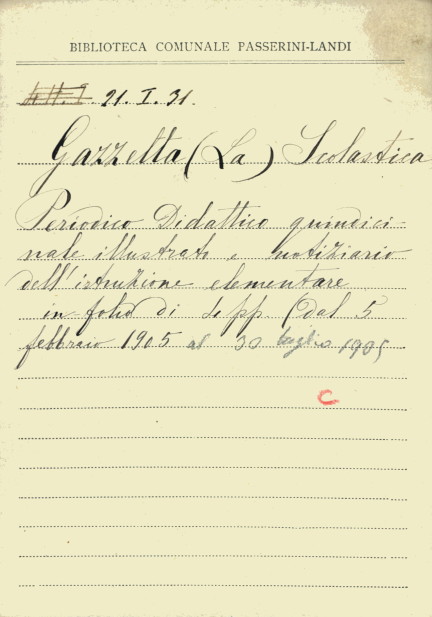 BIBLIOTECA COMUNALE PASSERINI-LANDI
21. I. 31.
Gazzetta (La) Scolastica
Periodico Didattico quindici-
nale illustrato e notiziario
dell'istruzione elementare
in-folio di 4 pp. (dal 5
febbraio 1905 al 30 luglio 1905
C